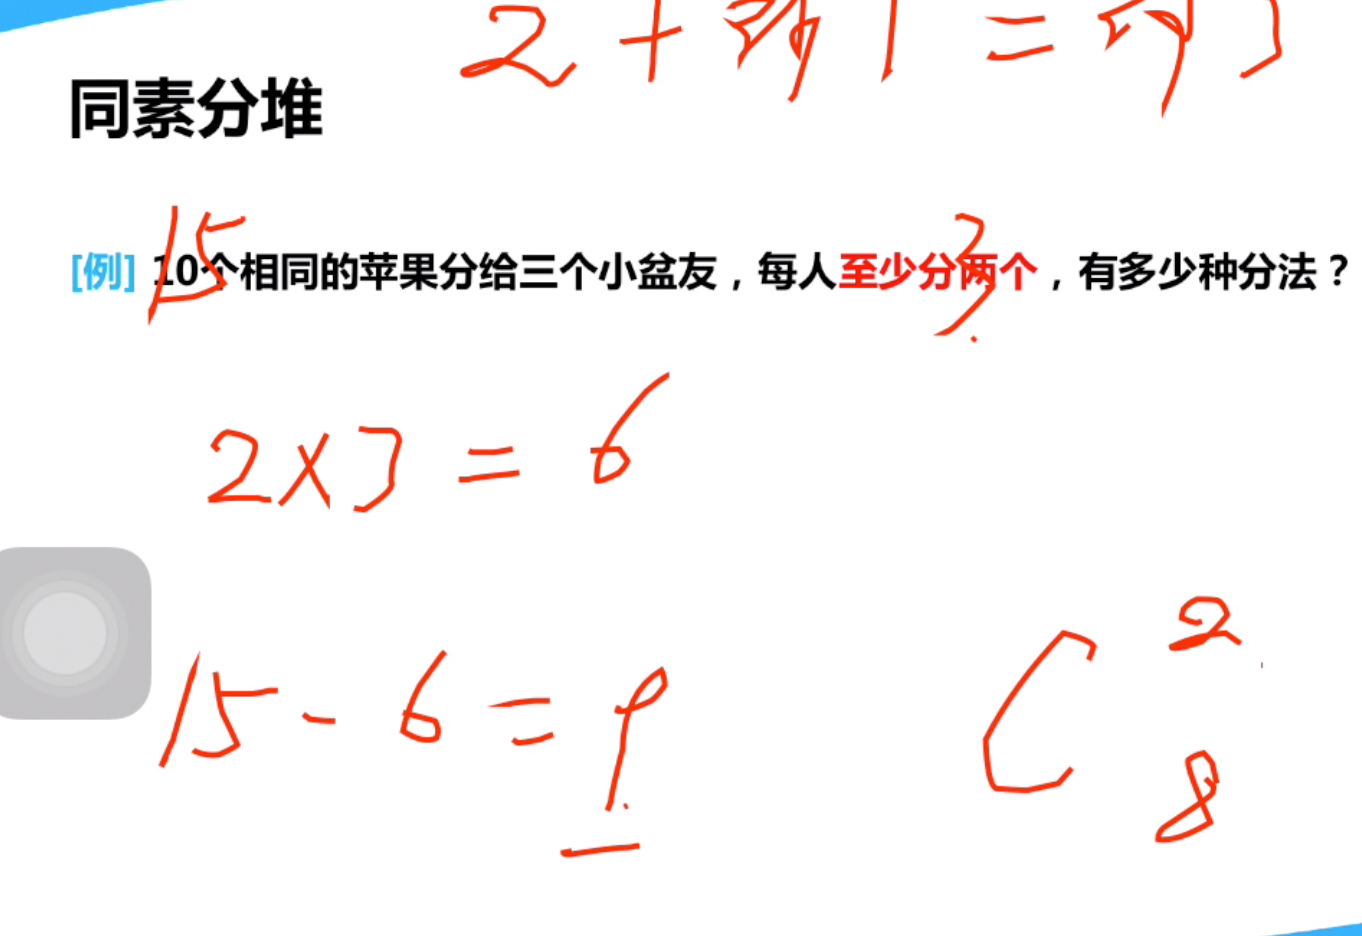 同素分堆
15
3
[例] 10个相同的苹果分给三个小盆友，每人至少分两个，有多少种分法？
2×3 = 6
15 - 6 = 9
C 2 8